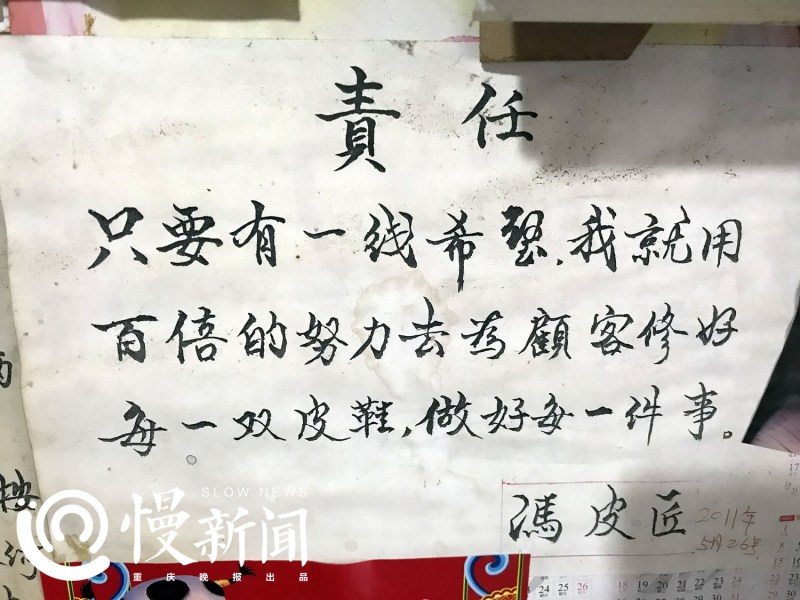 責任
只要有一线希望,我就用
百倍的努力去為顧客修好
每一双皮鞋,做好每一件事。
馮皮匠
2011年
5月26号
SLOW NEWS
慢新闻
重庆晚报出品
按
24 25 26
18 19 20 21 22 23 24